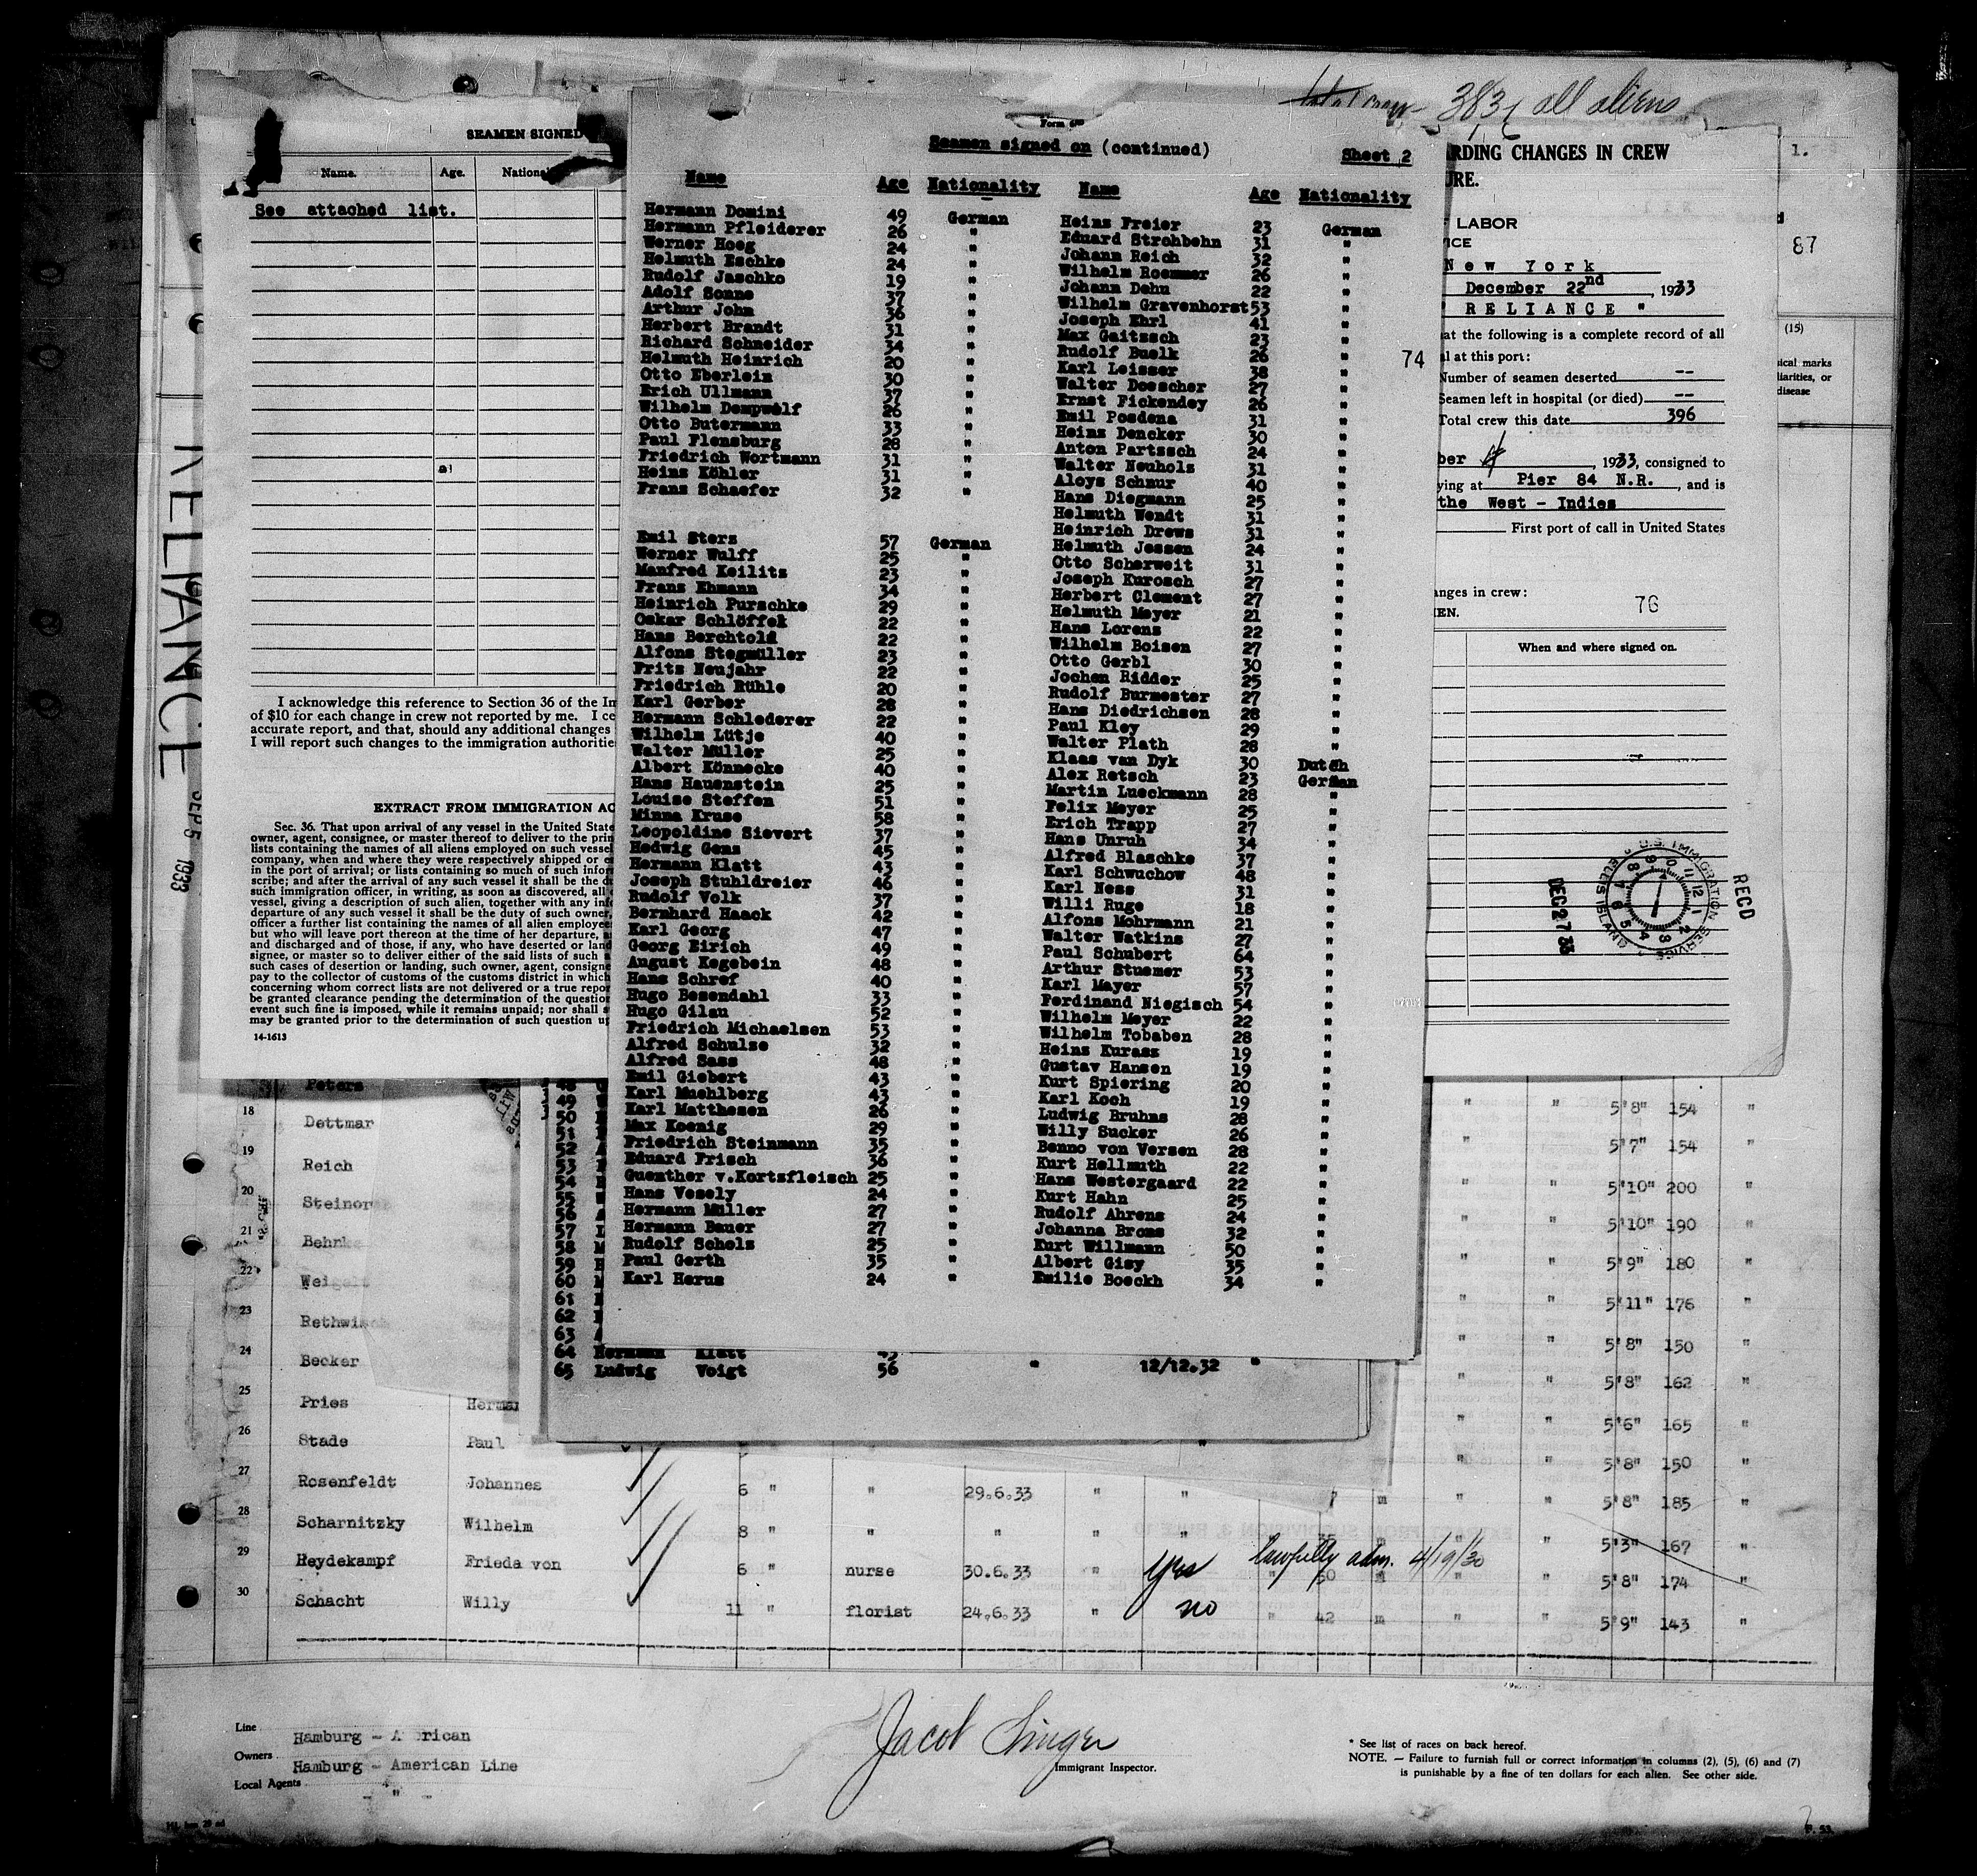 total crew 383 all aliens
SEAMEN SIGNED
Name.
Age.
See attached list.
I acknowledge this reference to Section 36 of the
of $10 for each change in crew not reported by me. I
accurate report, and that, should any additional changes
I will report such changes to the immigration
EXTRACT FROM IMMIGRATION
Sec. 36. That upon arrival of any vessel in the United
owner, agent, consignee, or master thereof to deliver to the
lists containing the names of all aliens employed on such
company, when and where they were respectively shipped or
in the port of arrival; or lists containing so much of such
scribe; and after the arrival of any such vessel it shall be the
such immigration officer, in writing, as soon as discovered, all
vessel, giving a description of such alien, together with any
departure of any such vessel it shall be the duty of such owner,
officer a further list containing the names of all alien
but who will leave port thereon at the time of her departure,
and discharged and of those, if any, who have deserted or
signee, or master so to deliver either of the said lists of such
such cases of desertion or landing, such owner, agent,
pay to the collector of customs of the customs district in which
concerning whom correct lists are not delivered or a true
be granted clearance pending the determination of the
event such fine is imposed, while it remains unpaid; nor shall
may be granted prior to the determination of such question
14-1613
RELIANCE
SEP 5 1933
Form
Seamen signed on (continued)
Sheet 2
Name Age Nationality
Hermann Domini 49 German
Hermann Pfleiderer 26 "
Werner Hoeg 24 "
Helmuth Eschke 24 "
Rudolf Jaschko 19 "
Adolf Sonne 37 "
Arthur John 36 "
Herbert Brandt 31 "
Richard Schneider 34 "
Helmuth Heinrich 20 "
Otto Eberlein 30 "
Erich Ullmann 37 "
Wilhelm Dempwolf 26 "
Otto Butermann 33 "
Paul Flensburg 28 "
Friedrich Wortmann 31 "
Heinz Köhler 31 "
Franz Schaefer 32 "
Emil Sterz 57 German
Werner Wulff 25 "
Manfred Keilitz 23 "
Franz Ehmann 34 "
Heinrich Purschke 29 "
Oskar Schlöffel 22 "
Hans Berchtold 22 "
Alfons Stegmüller 23 "
Fritz Neujahr 22 "
Friedrich Rühle 20 "
Karl Gerber 28 "
Hermann Schlederer 22 "
Wilhelm Lütje 40 "
Walter Müller 25 "
Albert Könnecke 40 "
Hans Hauenstein 25 "
Louise Steffen 51 "
Minna Kruse 58 "
Leopoldine Sievert 37 "
Hedwig Gens 45 "
Hermann Klatt 43 "
Joseph Stuhldreier 46 "
Rudolf Volk 37 "
Bernhard Haack 42 "
Karl Georg 47 "
Georg Eirich 49 "
August Kegebein 48 "
Hans Schref 40 "
Hugo Besendahl 33 "
Hugo Gilau 52 "
Friedrich Michaelsen 53 "
Alfred Schulze 32 "
Alfred Sass 48 "
Emil Giebert 43 "
Karl Muehlberg 43 "
Karl Matthesen 26 "
Max Koenig 29 "
Friedrich Steinmann 35 "
Eduard Frisch 36 "
Guenther v.Kortzfleisch 25 "
Hans Vesely 24 "
Hermann Müller 27 "
Hermann Bauer 27 "
Rudolf Scholz 25 "
Paul Gerth 35 "
Karl Herus 24 "
Name Age Nationality
Heinz Freier 23 German
Eduard Strohbehn 31 "
Johann Reich 32 "
Wilhelm Roemmer 26 "
Johann Dehu 22 "
Wilhelm Gravenhorst 53 "
Joseph Ehrl 41 "
Max Gaitzsch 23 "
Rudolf Buelk 26 "
Karl Leisser 38 "
Walter Doescher 27 "
Ernst Fickendey 26 "
Emil Posdena 31 "
Heinz Dencker 30 "
Anton Partzsch 24 "
Walter Neuholz 31 "
Aloys Schnur 40 "
Hans Diegmann 25 "
Helmuth Wendt 31 "
Heinrich Drews 31 "
Helmuth Jessen 24 "
Otto Scharweit 31 "
Joseph Kurosch 27 "
Herbert Clement 27 "
Helmuth Meyer 21 "
Hans Lorenz 22 "
Wilhelm Boisen 27 "
Otto Gerbl 30 "
Jochen Ridder 25 "
Rudolf Burmester 27 "
Hans Diedrichsen 28 "
Paul Kley 29 "
Walter Plath 28 "
Klaas van Dyk 30 Dutch
Alex Retsch 23 German
Martin Lueckmann 28 "
Felix Meyer 25 "
Erich Trapp 27 "
Hans Unruh 34 "
Alfred Blaschke 37 "
Karl Schwuchow 48 "
Karl Ness 31 "
Willi Ruge 18 "
Alfons Mohrmann 21 "
Walter Watkins 27 "
Paul Schubert 64 "
Arthur Stuemer 53 "
Karl Mayer 57 "
Ferdinand Niegisch 54 "
Wilhelm Meyer 22 "
Wilhelm Tobaben 28 "
Heinz Kurass 19 "
Gustav Hansen 19 "
Kurt Spiering 20 "
Karl Koch 19 "
Ludwig Bruhns 28 "
Willy Sucker 26 "
Benno von Versen 28 "
Kurt Hellmuth 22 "
Hans Westergaard 22 "
Kurt Hahn 25 "
Rudolf Ahrens 24 "
Johanna Broms 32 "
Kurt Willmann 50 "
Albert Gisy 35 "
Emilie Boeckh 34 "
74
RDING CHANGES IN CREW
URE.
LABOR
ICE
New York
December 22nd, 1933
RELIANCE "
at the following is a complete record of all
at this port:
Number of seamen deserted --
Seamen left in hospital (or died) --
Total crew this date 396
ber , 1933, consigned to
ying at Pier 84 N.R., and is
the West - Indies
First port of call in United States
anges in crew:
76
When and where signed on.
RECD
U.S. IMMIGRATION SERVICE
ELLIS ISLAND
DEC 27 33
1.
87
(15)
ical marks
liarities, or
disease
48
49
50
51
52
53
54
55
56
57
58
59
60
61
62
63
64 Hermann Klatt 43
65 Ludwig Voigt 56 " 12/12.32 "
Peters
18 Dettmar " " 5'8" 154 "
19 Reich " 5'7" 154 "
20 Steinor " " 5'10" 200 "
21 Behnke " " 5'10" 190 "
22 Weigelt " " 5'9" 180 "
23 Rethwisch " " 5'11" 176 "
24 Becker " " 5'8" 150 "
25 Pries Herman " " 5'8" 162 "
26 Stade Paul " " 5'6" 165 "
27 Rosenfeldt Johannes 6 " " 29.6.33 " " m " " 5'8" 150 "
28 Scharnitzky Wilhelm 8 " " " " " " " 5'8" 185 "
5'3" 167 "
29 Heydekampf Frieda von 6 " nurse 30.6.33 " yes lawfully adm. 4/19/30 " 5'8" 174 "
30 Schacht Willy 11 " florist 24.6.33 " no " 42 m " " 5'9" 143 "
Line Hamburg - A rican
Owners Hamburg - American Line
Local Agents " -
Jacob Singer
Immigrant Inspector.
* See list of races on back hereof.
NOTE. — Failure to furnish full or correct information in columns (2), (5), (6) and (7)
is punishable by a fine of ten dollars for each alien. See other side.